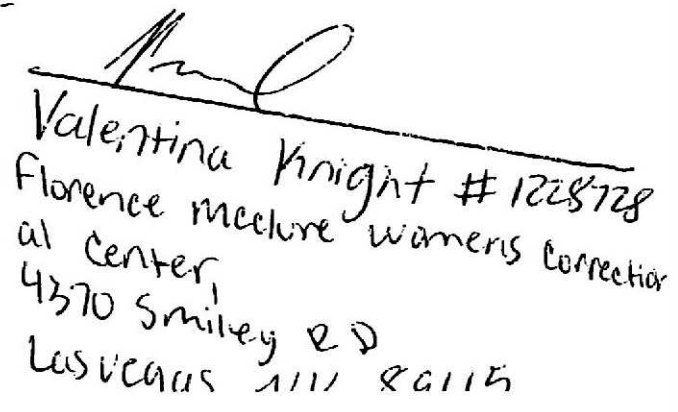 Valentina Knight # 1228728
Florence mcclure womens Correction
al Center,
4370 Smiley RD
Las vegas 89115